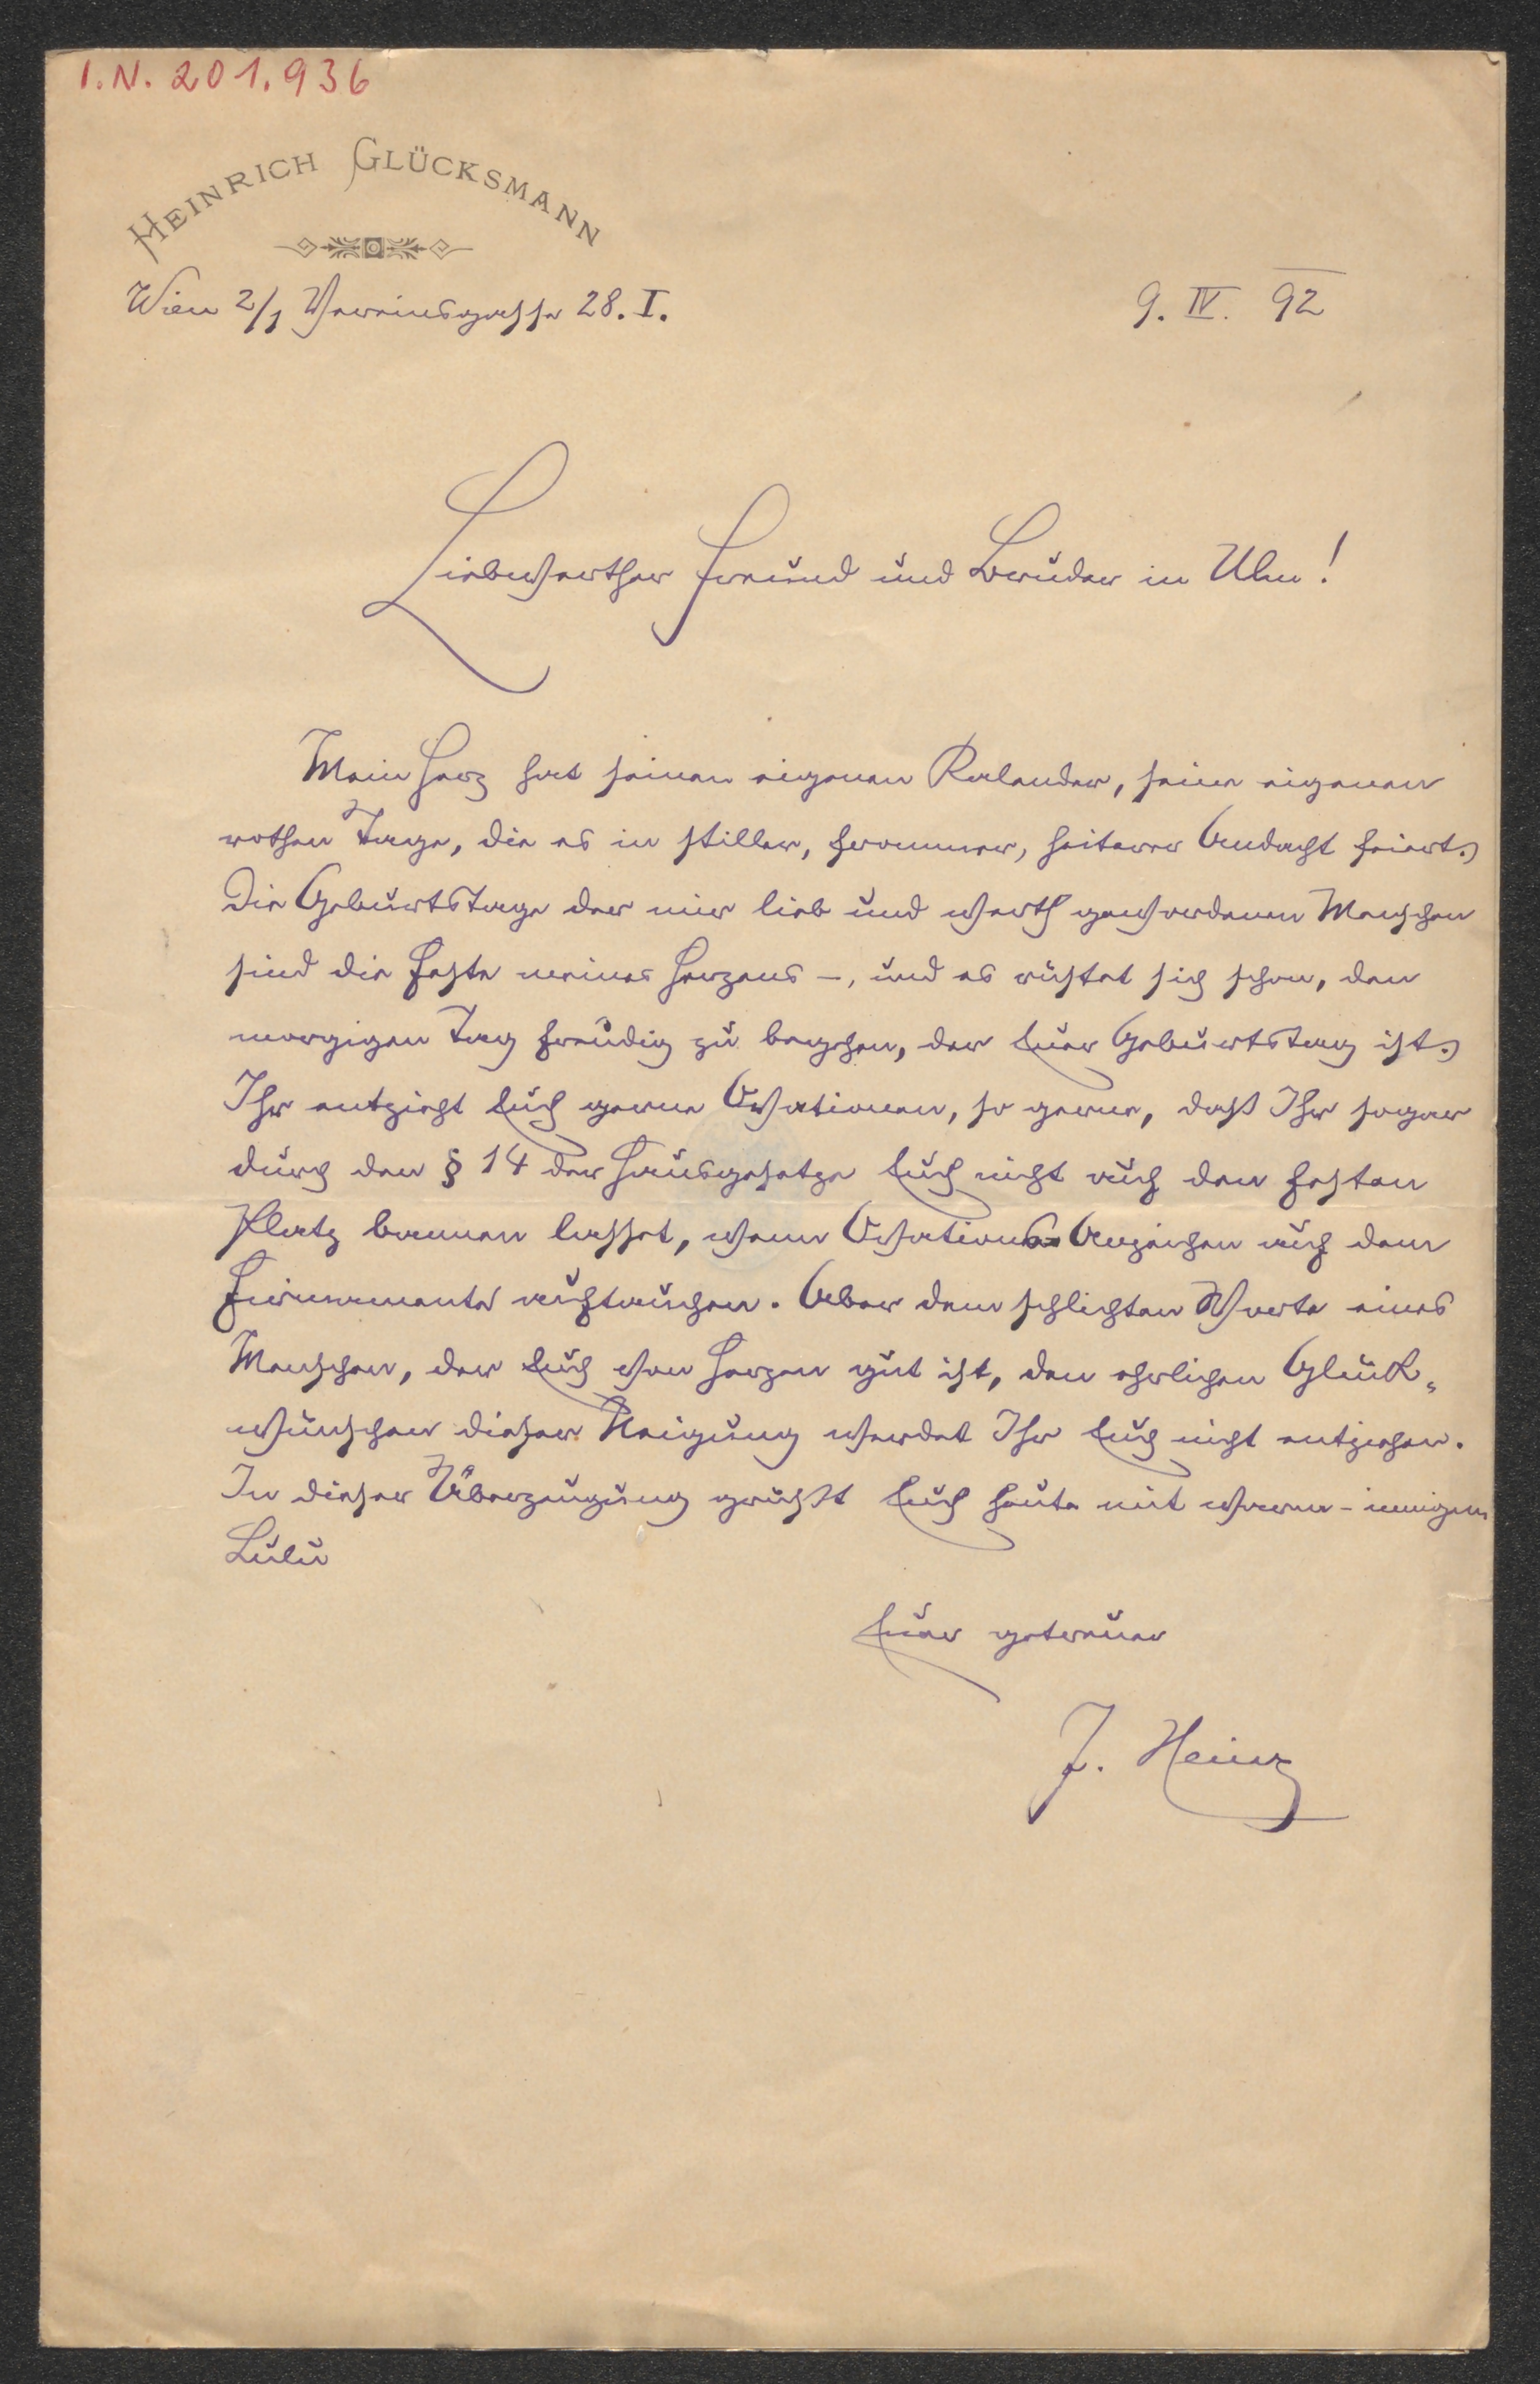 I.N. 201.936
HEINRICH GLÜCKSMANN
Wien 2/1 Vereinsgasse 28. I.
9. IV. 92
Liebwerther Freund und Bruder in Ulm!
Mein Herz hat seinen eigenen Kalender, seine eigenen
rothen Tage, die es in stiller, frommer, heiterer Andacht feiert.
Die Geburtstage der mir lieb und werth gewordenen Menschen
sind die Feste meines Herzens –, und es rüstet sich schon, den
morgigen Tag freudig zu begehen, der Euer Geburtstag ist.
Ihr entzieht Euch gerne Ovationen, so gerne, daß Ihr sogar
durch den § 14 der Hausgesetze Euch nicht auf den festen
Platz bannen lasset, wenn Ovations-Anzeichen auf dem
Firmamente auftauchen. Aber dem schlichten Worte eines
Menschen, der Euch von Herzen gut ist, den ehrlichen Glück-
wünschen dieser Neigung werdet Ihr Euch nicht entziehen.
In dieser Überzeugung grüßt Euch heute mit warm-innigem
Lulu
Euer getreuer
J. Heinz